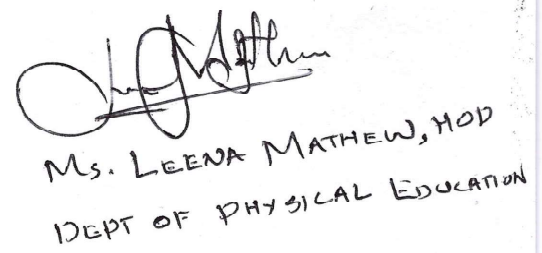 Ms. LEENA MATHEW, HOD
DEPT OF PHYSICAL EDUCATION